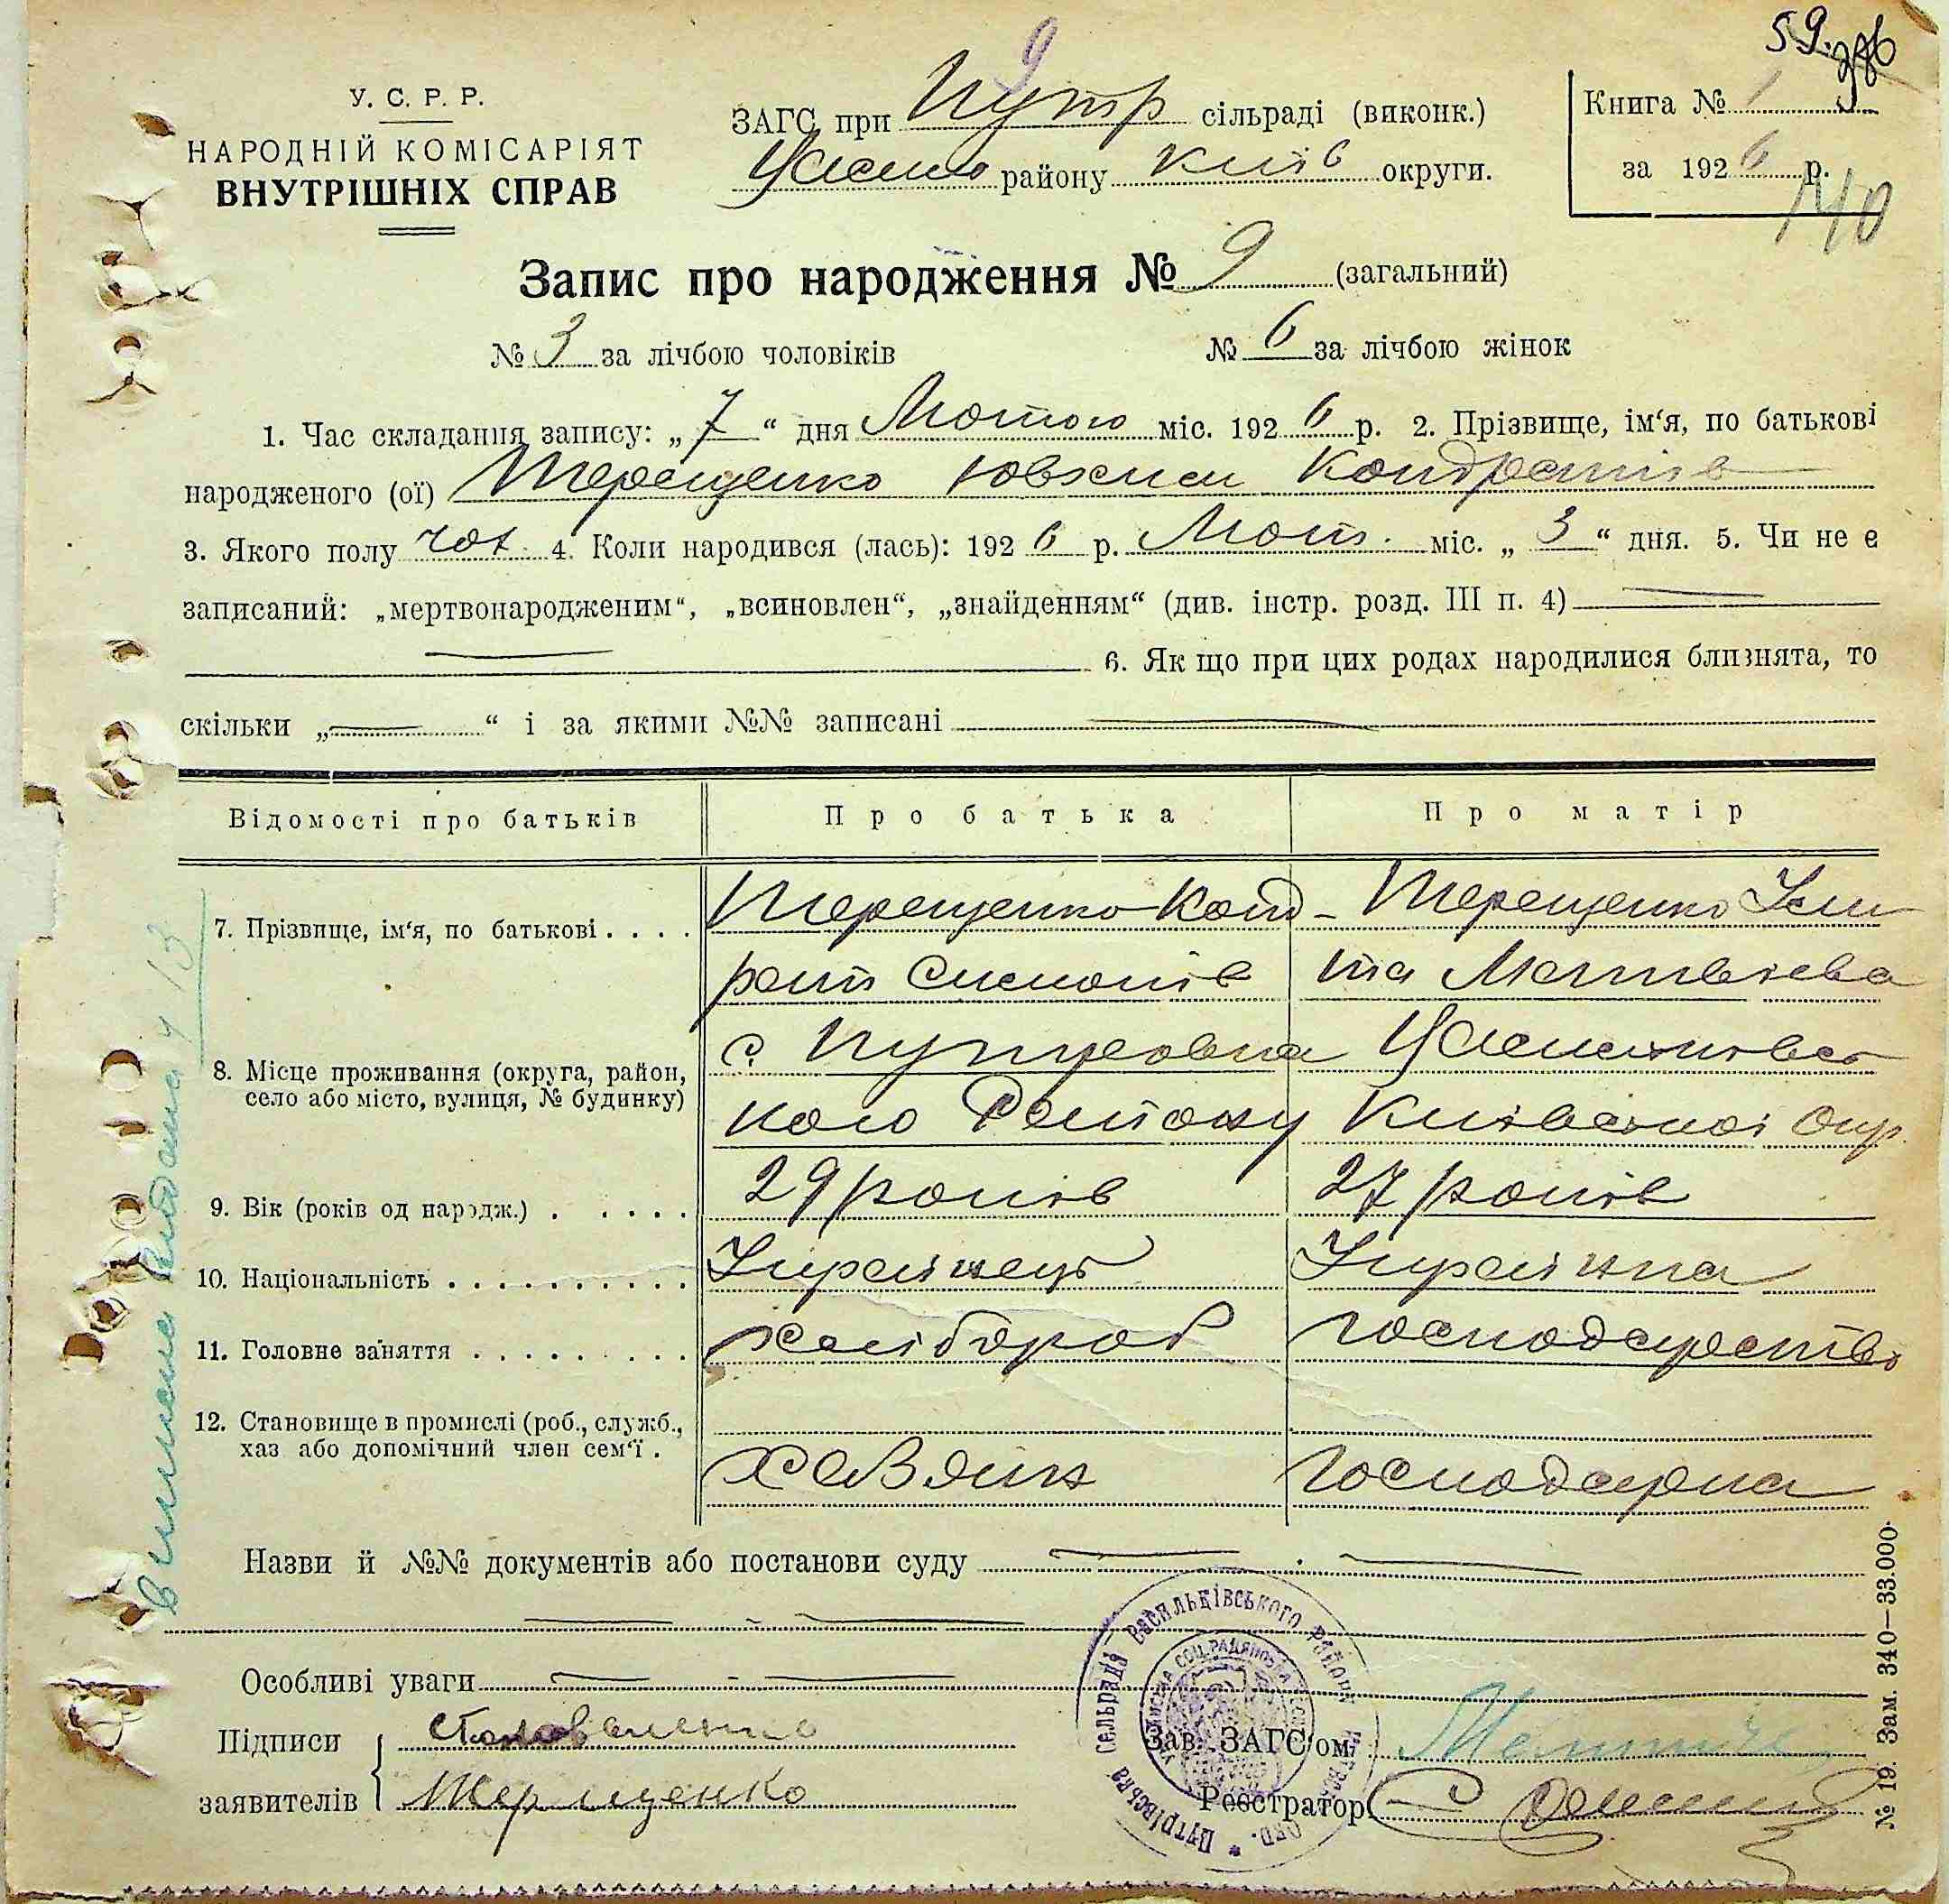 59.
У. С. Р. Р.
НАРОДНІЙ КОМІСАРІЯТ
ВНУТРІШНІХ СПРАВ
9
ЗАГС при Путр сільраді (виконк.)
району Київ округи.
Книга № 1
за 1926 р.
140
Запис про народження № 9 (загальний)
№ 3 за лічбою чоловіків № 6 за лічбою жінок
1. Час складання запису: „7“ дня Лютого міс. 1926 р. 2. Прізвище, ім‘я, по батькові
народженого (ої) Терещенко Ювхим Кондратів
3. Якого полу чол 4. Коли народився (лась): 1926 р. Лют. міс. „3“ дня. 5. Чи не є
записаний: „мертвонародженим“, „всиновлен“, „знайденням“ (див. інстр. розд. III п. 4)
6. Як що при цих родах народилися близнята, то
скільки „ “ і за якими №№ записані
Відомості про батьків Про батька Про матір
7. Прізвище, ім‘я, по батькові . . . . Терещенко Конд- Терещенко Яки
рат Симонів та Матвієва
8. Місце проживання (округа, район,
село або місто, вулиця, № будинку)
с. Путровка Васильківсь
кого Району Київської Окр.
9. Вік (років од народж.) . . . . . 29 років 27 років
10. Національність . . . . . . . . . . Українець Українка
11. Головне заняття . . . . . . . . . хлібороб господарство
12. Становище в промислі (роб., служб.,
хаз або допомічний член сем‘ї .
хавяін господарка
Назви й №№ документів або постанови суду
Особливі уваги
Підписи
заявителів Терещенко
Зав. ЗАГС‘ом
Реєстратор
Путрівська сельрада Васильківського району
№ 19. Зам. 340—33.000.
виписка видана 13